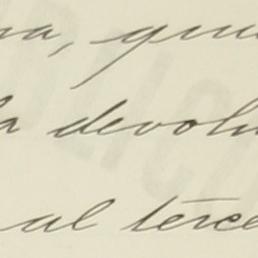 na, que
la devolu
al terce